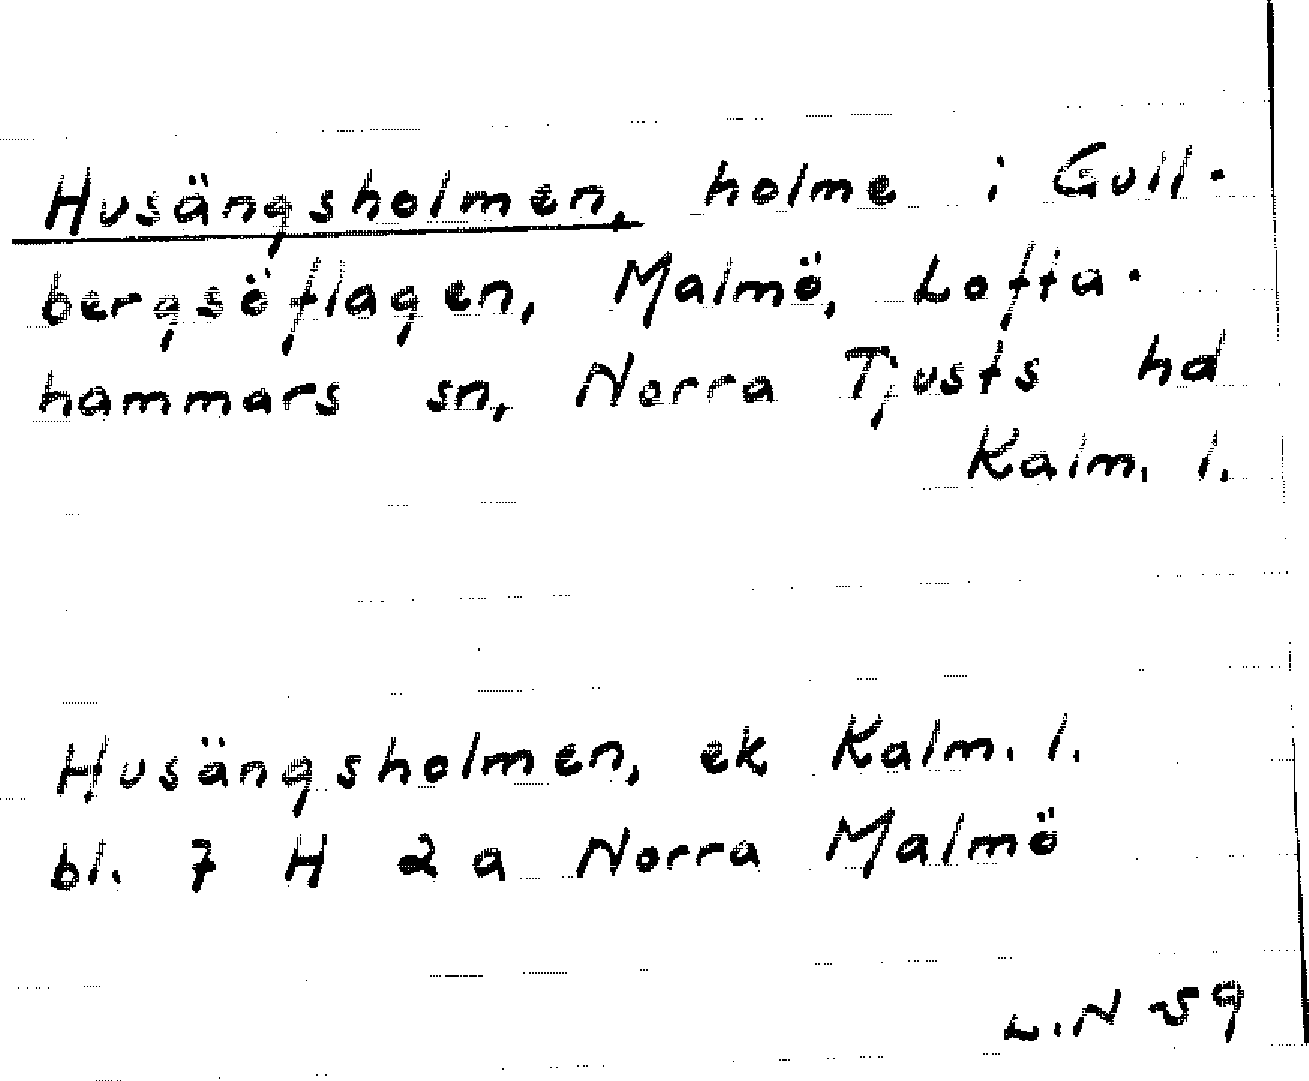 Husängsholmen, holme i Gull-
bergsöflagen, Malmö, Lofta-
hammars sn, Norra Tjusts hd
Kalm. l.
Husängsholmen, ek Kalm. l.
bl. 7 H 2 a Norra Malmö
L.N 59